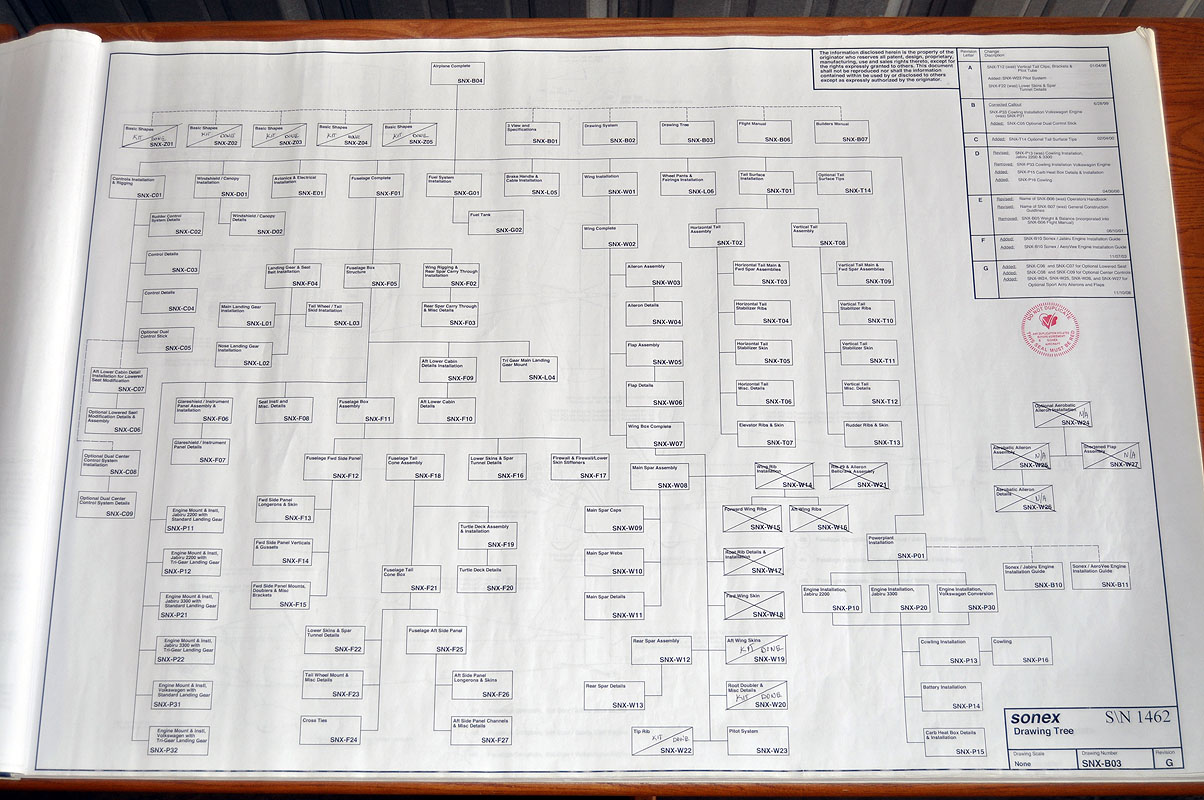 The information disclosed herein is the property of the
originator who reserves all patent, design, proprietary,
manufacturing, use and sales rights thereto, except for
the rights expressly granted to others. This document
shall not be reproduced nor shall the information
contained within be used by or disclosed to others
except as expressly authorized by the originator.
Revision
Letter
Change
Description
A
SNX-T13 (was) Vertical Tail Clips, Brackets &
Pilot Tube
01/04/99
Added: SNX-W23 Pilot System
SNX-F22 (was) Lower Skins & Spar
Tunnel Details
B
Corrected Callout
SNX-P33 Cowling Installation Volkswagen Engine
Added: SNX-C05 Optional Dual Control Stick
C
Added: SNX-T14 Optional Tail Surface Tips
D
Revised: SNX-P13 (was) Cowling Installation,
Jabiru 2200 & 3300
Removed: SNX-P33 Cowling Installation Volkswagen Engine
Added: SNX-P15 Carb Heat Box Details & Installation
Added: SNX-P16 Cowling
E
Revised: Name of SNX-B06 (was) Operators Handbook
Revised: Name of SNX-B07 (was) General Construction
Guidlines
Removed: SNX-B05 Weight & Balance (incorporated into
SNX-B06 Flight Manual)
F
Added: SNX-B10 Sonex / Jabiru Engine Installation Guide
Added: SNX-B10 Sonex / AeroVee Engine Installation Guide
G
Added: SNX-C06 and SNX-C07 for Optional Lowered Seat
Added: SNX-C08 and SNX-C09 for Optional Center Controls
Added: SNX-W24, SNX-W25, SNX-W26, and SNX-W27 for
Optional Sport Acro Ailerons and Flaps
DO NOT DUPLICATE
THIS SEAL MUST BE RED
Airplane Complete
SNX-B04
Basic Shapes
KIT DONE
SNX-Z01
Basic Shapes
KIT DONE
SNX-Z02
Basic Shapes
KIT DONE
SNX-Z03
Basic Shapes
KIT DONE
SNX-Z04
Basic Shapes
KIT DONE
SNX-Z05
3 View and
Specifications
SNX-B01
Drawing System
SNX-B02
Drawing Tree
SNX-B03
Flight Manual
SNX-B06
Builders Manual
SNX-B07
Controls Installation
& Rigging
SNX-C01
Windshield / Canopy
Installation
SNX-D01
Avionics & Electrical
Installation
SNX-E01
Fuselage Complete
SNX-F01
Fuel System
Installation
SNX-G01
Brake Handle &
Cable Installation
SNX-L05
Wing Installation
SNX-W01
Wheel Pants &
Fairings Installation
SNX-L06
Tail Surface
Installation
SNX-T01
Optional Tail
Surface Tips
SNX-T14
Builder Control
System Details
SNX-C02
Windshield / Canopy
Details
SNX-D02
Fuel Tank
SNX-G02
Wing Complete
SNX-W02
Horizontal Tail
Assembly
SNX-T02
Vertical Tail
Assembly
SNX-T08
Control Details
SNX-C03
Landing Gear & Seat
Belt Installation
SNX-F04
Fuselage Box
Structure
SNX-F05
Wing Rigging &
Rear Spar Carry Through
Installation
SNX-F02
Aileron Assembly
SNX-W03
Horizontal Tail Main &
Fwd Spar Assemblies
SNX-T03
Vertical Tail Main &
Fwd Spar Assemblies
SNX-T09
Control Details
SNX-C04
Main Landing Gear
Installation
SNX-L01
Tail Wheel / Tail
Skid Installation
SNX-L03
Rear Spar Carry Through
& Misc Details
SNX-F03
Aileron Details
SNX-W04
Horizontal Tail
Stabilizer Ribs
SNX-T04
Vertical Tail
Stabilizer Ribs
SNX-T10
Optional Dual
Control Stick
SNX-C05
Nose Landing Gear
Installation
SNX-L02
Aft Lower Cabin
Details Installation
SNX-F09
Tri Gear Main Landing
Gear Mount
SNX-L04
Flap Assembly
SNX-W05
Horizontal Tail
Stabilizer Skin
SNX-T05
Vertical Tail
Stabilizer Skin
SNX-T11
Aft Lower Cabin Detail
Installation for Lowered
Seat Modification
SNX-C07
Flap Details
SNX-W06
Horizontal Tail
Misc Details
SNX-T06
Vertical Tail
Misc. Details
SNX-T12
Optional Lowered Seat
Modification Details &
Assembly
SNX-C06
Glareshield / Instrument
Panel Assembly &
Installation
SNX-F06
Seat Instl and
Misc. Details
SNX-F08
Fuselage Box
Assembly
SNX-F11
Aft Lower Cabin
Details
SNX-F10
Wing Box Complete
SNX-W07
Elevator Ribs & Skin
SNX-T07
Rudder Ribs & Skin
SNX-T13
Optional Aerobatic
Aileron Installation
N/A
SNX-W24
Optional Dual Center
Control System
Installation
SNX-C08
Glareshield / Instrument
Panel Details
SNX-F07
Fuselage Fwd Side Panel
SNX-F12
Fuselage Tail
Cone Assembly
SNX-F18
Lower Skins & Spar
Tunnel Details
SNX-F16
Firewall & Firewall/Lower
Skin Stiffeners
SNX-F17
Main Spar Assembly
SNX-W08
Wing Rib
Installation
SNX-W14
Rib #9 & Aileron
Bellcrank Assembly
SNX-W21
Aerobatic Aileron
Assembly
N/A
SNX-W25
Shortened Flap
Assembly
N/A
SNX-W27
Optional Dual Center
Control System Details
SNX-C09
Aerobatic Aileron
Details
N/A
SNX-W26
Engine Mount & Instl,
Jabiru 2200 with
Standard Landing Gear
SNX-P11
Fwd Side Panel
Longerons & Skin
SNX-F13
Turtle Deck Assembly
& Installation
SNX-F19
Main Spar Caps
SNX-W09
Forward Wing Ribs
SNX-W15
Aft Wing Ribs
SNX-W16
Engine Mount & Instl,
Jabiru 2200 with
Tri-Gear Landing Gear
SNX-P12
Fwd Side Panel Verticals
& Gussets
SNX-F14
Fuselage Tail
Cone Box
SNX-F21
Turtle Deck Details
SNX-F20
Main Spar Webs
SNX-W10
Root Rib Details &
Installation
SNX-W17
Powerplant
Installation
SNX-P01
Sonex / Jabiru Engine
Installation Guide
SNX-B10
Sonex / AeroVee Engine
Installation Guide
SNX-B11
Engine Mount & Instl,
Jabiru 3300 with
Standard Landing Gear
SNX-P21
Fwd Side Panel Mounts,
Doublers & Misc
Brackets
SNX-F15
Main Spar Details
SNX-W11
Fwd Wing Skin
SNX-W18
Engine Installation,
Jabiru 2200
SNX-P10
Engine Installation,
Jabiru 3300
SNX-P20
Engine Installation,
Volkswagen Conversion
SNX-P30
Engine Mount & Instl,
Jabiru 3300 with
Tri-Gear Landing Gear
SNX-P22
Lower Skins & Spar
Tunnel Details
SNX-F22
Fuselage Aft Side Panel
SNX-F25
Rear Spar Assembly
SNX-W12
Aft Wing Skins
KIT DONE
SNX-W19
Cowling Installation
SNX-P13
Cowling
SNX-P16
Engine Mount & Instl,
Volkswagen with
Standard Landing Gear
SNX-P31
Tail Wheel Mount &
Misc Details
SNX-F23
Aft Side Panel
Longerons & Skins
SNX-F26
Rear Spar Details
SNX-W13
Root Doubler &
Misc Details
KIT DONE
SNX-W20
Battery Installation
SNX-P14
Engine Mount & Instl,
Volkswagen with
Tri-Gear Landing Gear
SNX-P32
Cross Ties
SNX-F24
Aft Side Panel Channels
& Misc Details
SNX-F27
Tip Rib
KIT DONE
SNX-W22
Pilot System
SNX-W23
Carb Heat Box Details
& Installation
SNX-P15
sonex
S\N 1462
Drawing Tree
Drawing Scale
None
Drawing Number
SNX-B03
Revision
G